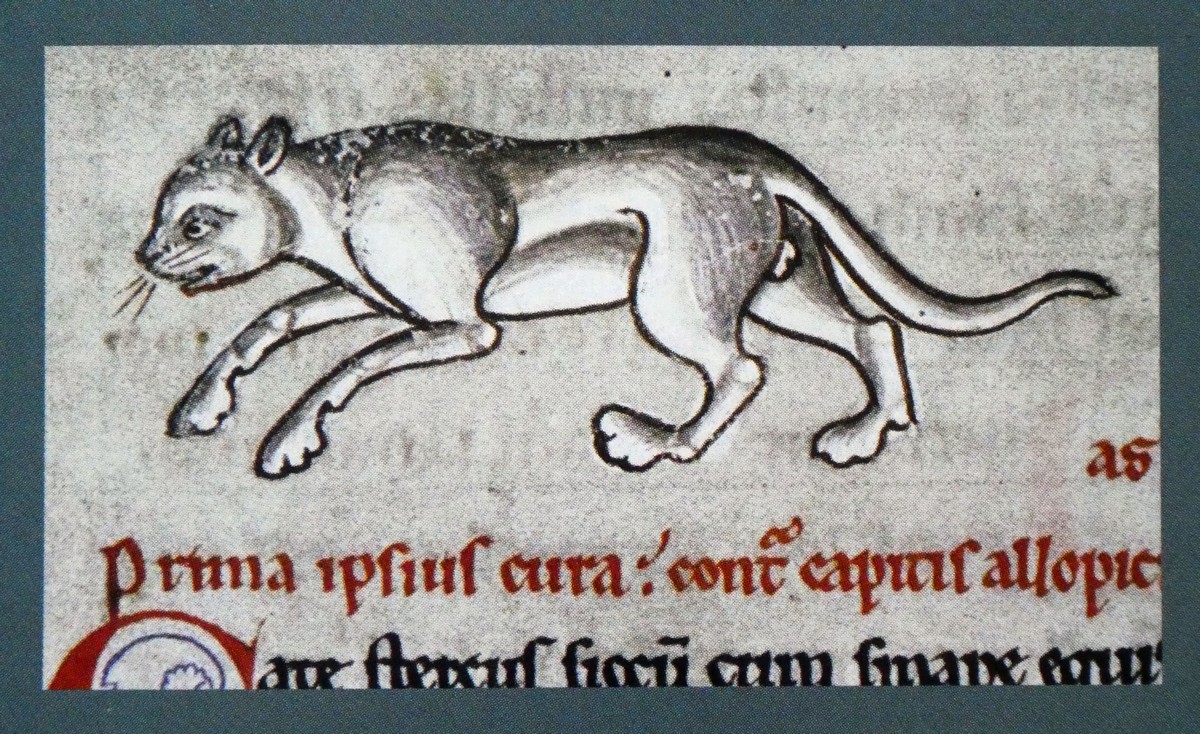 Prima ipſiuſ cura : contᷓ capitiſ allopic
Cate ſtercuſ ſiccū cum ſinape equiſ